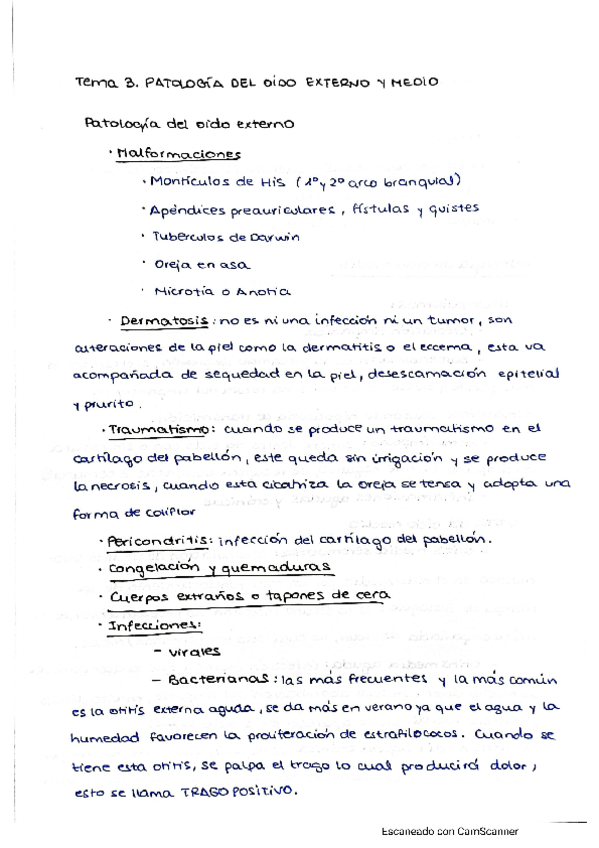 Tema 3. PATOLOGÍA DEL OÍDO EXTERNO Y MEDIO
Patología del oido externo
· Malformaciones
· Montículos de His (1º y 2º arco branquial)
· Apéndices preauriculares, fístulas y quistes
· Tubérculos de Darwin
· Oreja en asa
· Microtia o Anotia
· Dermatosis: no es ni una infección ni un tumor, son
alteraciones de la piel como la dermatitis o el eccema, esta va
acompañada de sequedad en la piel, desescamación epitelial
y prurito.
· Traumatismo: cuando se produce un traumatismo en el
cartílago del pabellón, este queda sin irrigación y se produce
la necrosis, cuando esta cicatriza la oreja se tensa y adopta una
forma de coliflor
· Pericondritis: infección del cartílago del pabellón.
· Congelación y quemaduras
· Cuerpos extraños o tapones de cera
· Infecciones:
- virales
- Bacterianas: las más frecuentes y la más común
es la otitis externa aguda, se da más en verano ya que el agua y la
humedad favorecen la proliferación de estafilococos. Cuando se
tiene esta otitis, se palpa el trago lo cual producirá dolor,
esto se llama TRAGO POSITIVO.
Escaneado con CamScanner